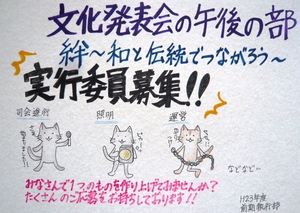 文化発表会の午後の部
絆～和と伝統でつながろう～
実行委員募集!!
司会進行
照明
運営
などなど…
みなさんで1つのものを作り上げてみませんか？
たくさんのご応募をお待ちしております!!
H23年度
前期執行部